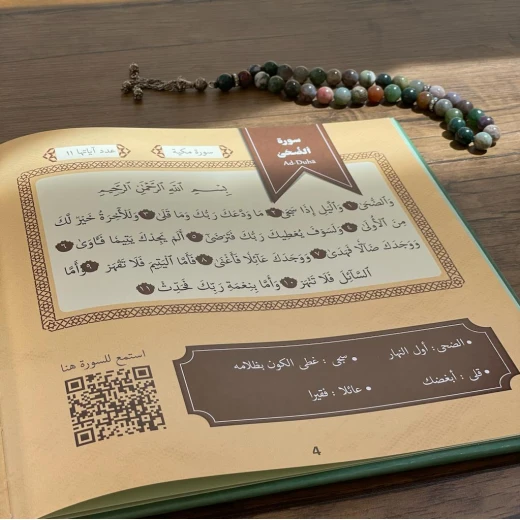 سورة
الضحى
Ad-Duha
سورة مكية
عدد آياتها ١١
بِسْمِ اللَّهِ الرَّحْمَٰنِ الرَّحِيمِ
وَالضُّحَىٰ ١ وَاللَّيْلِ إِذَا سَجَىٰ ٢ مَا وَدَّعَكَ رَبُّكَ وَمَا قَلَىٰ ٣ وَلَلْآخِرَةُ خَيْرٌ لَّكَ
مِنَ الْأُولَىٰ ٤ وَلَسَوْفَ يُعْطِيكَ رَبُّكَ فَتَرْضَىٰ ٥ أَلَمْ يَجِدْكَ يَتِيمًا فَآوَىٰ ٦
وَوَجَدَكَ ضَالًّا فَهَدَىٰ ٧ وَوَجَدَكَ عَائِلًا فَأَغْنَىٰ ٨ فَأَمَّا الْيَتِيمَ فَلَا تَقْهَرْ ٩ وَأَمَّا
السَّائِلَ فَلَا تَنْهَرْ ١٠ وَأَمَّا بِنِعْمَةِ رَبِّكَ فَحَدِّثْ ١١
• الضحى: أول النهار • سجى : غطى الكون بظلامه
• قلى : أبغضك • عائلا : فقيرا
استمع للسورة هنا
4